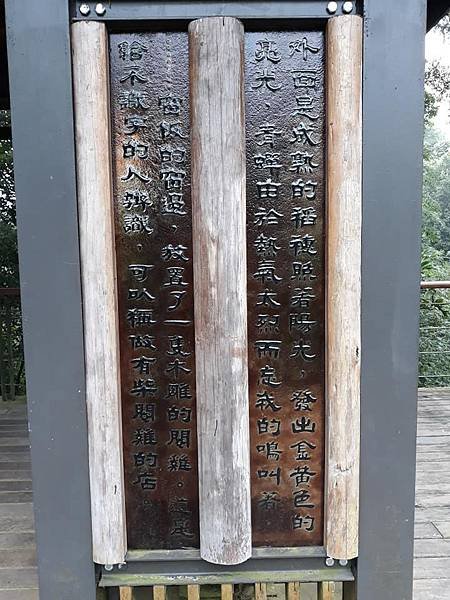 外面是成熟的稻穗照著陽光，發出金黃色的
晃光，青蟬由於熱氣太烈而忘我的鳴叫著
……陪伴的窗邊，放置了一隻木雕的閹雞。這是
給不識字的人辨識，可以稱做有柴閹雞的店。